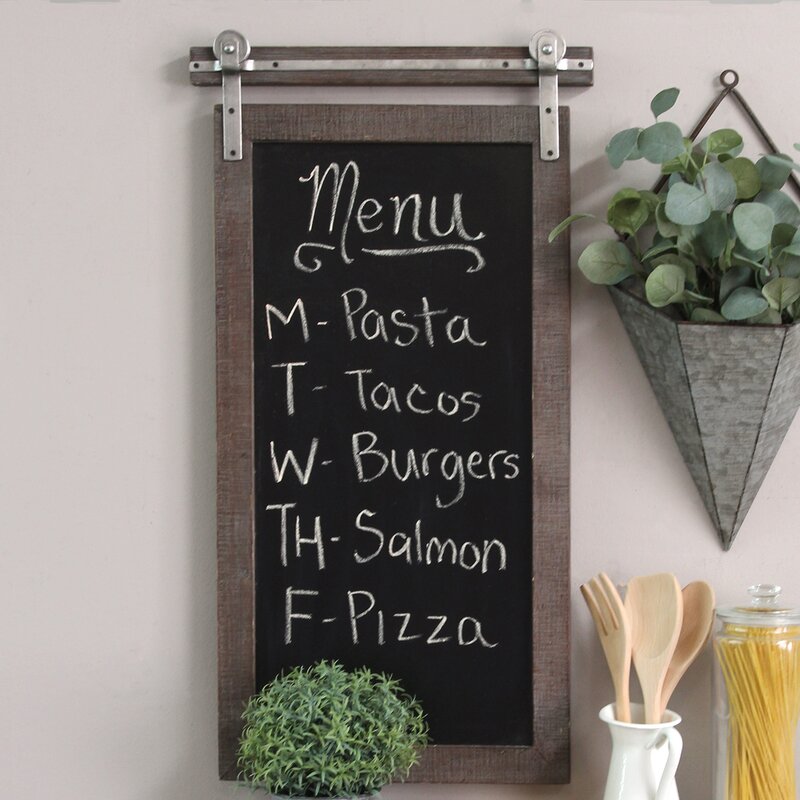 Menu
M- Pasta
T- Tacos
W- Burgers
TH- Salmon
F- Pizza